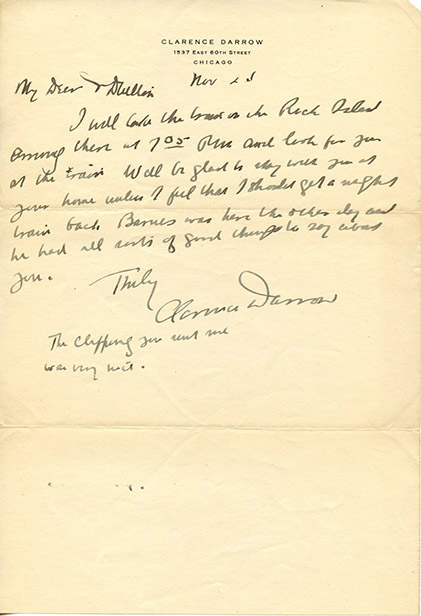 CLARENCE DARROW
1537 EAST 60TH STREET
CHICAGO
My Dear Nov
I will take the train on the Rock Island
arriving there at 7 05 P.M. and look for you
at the train Will be glad to stay with you at
your home unless I feel that I should get a night
train back Barnes was here the other day and
he had all sorts of good things to say about
you.
Truly
Clarence Darrow
The clipping you sent me
was very nice.